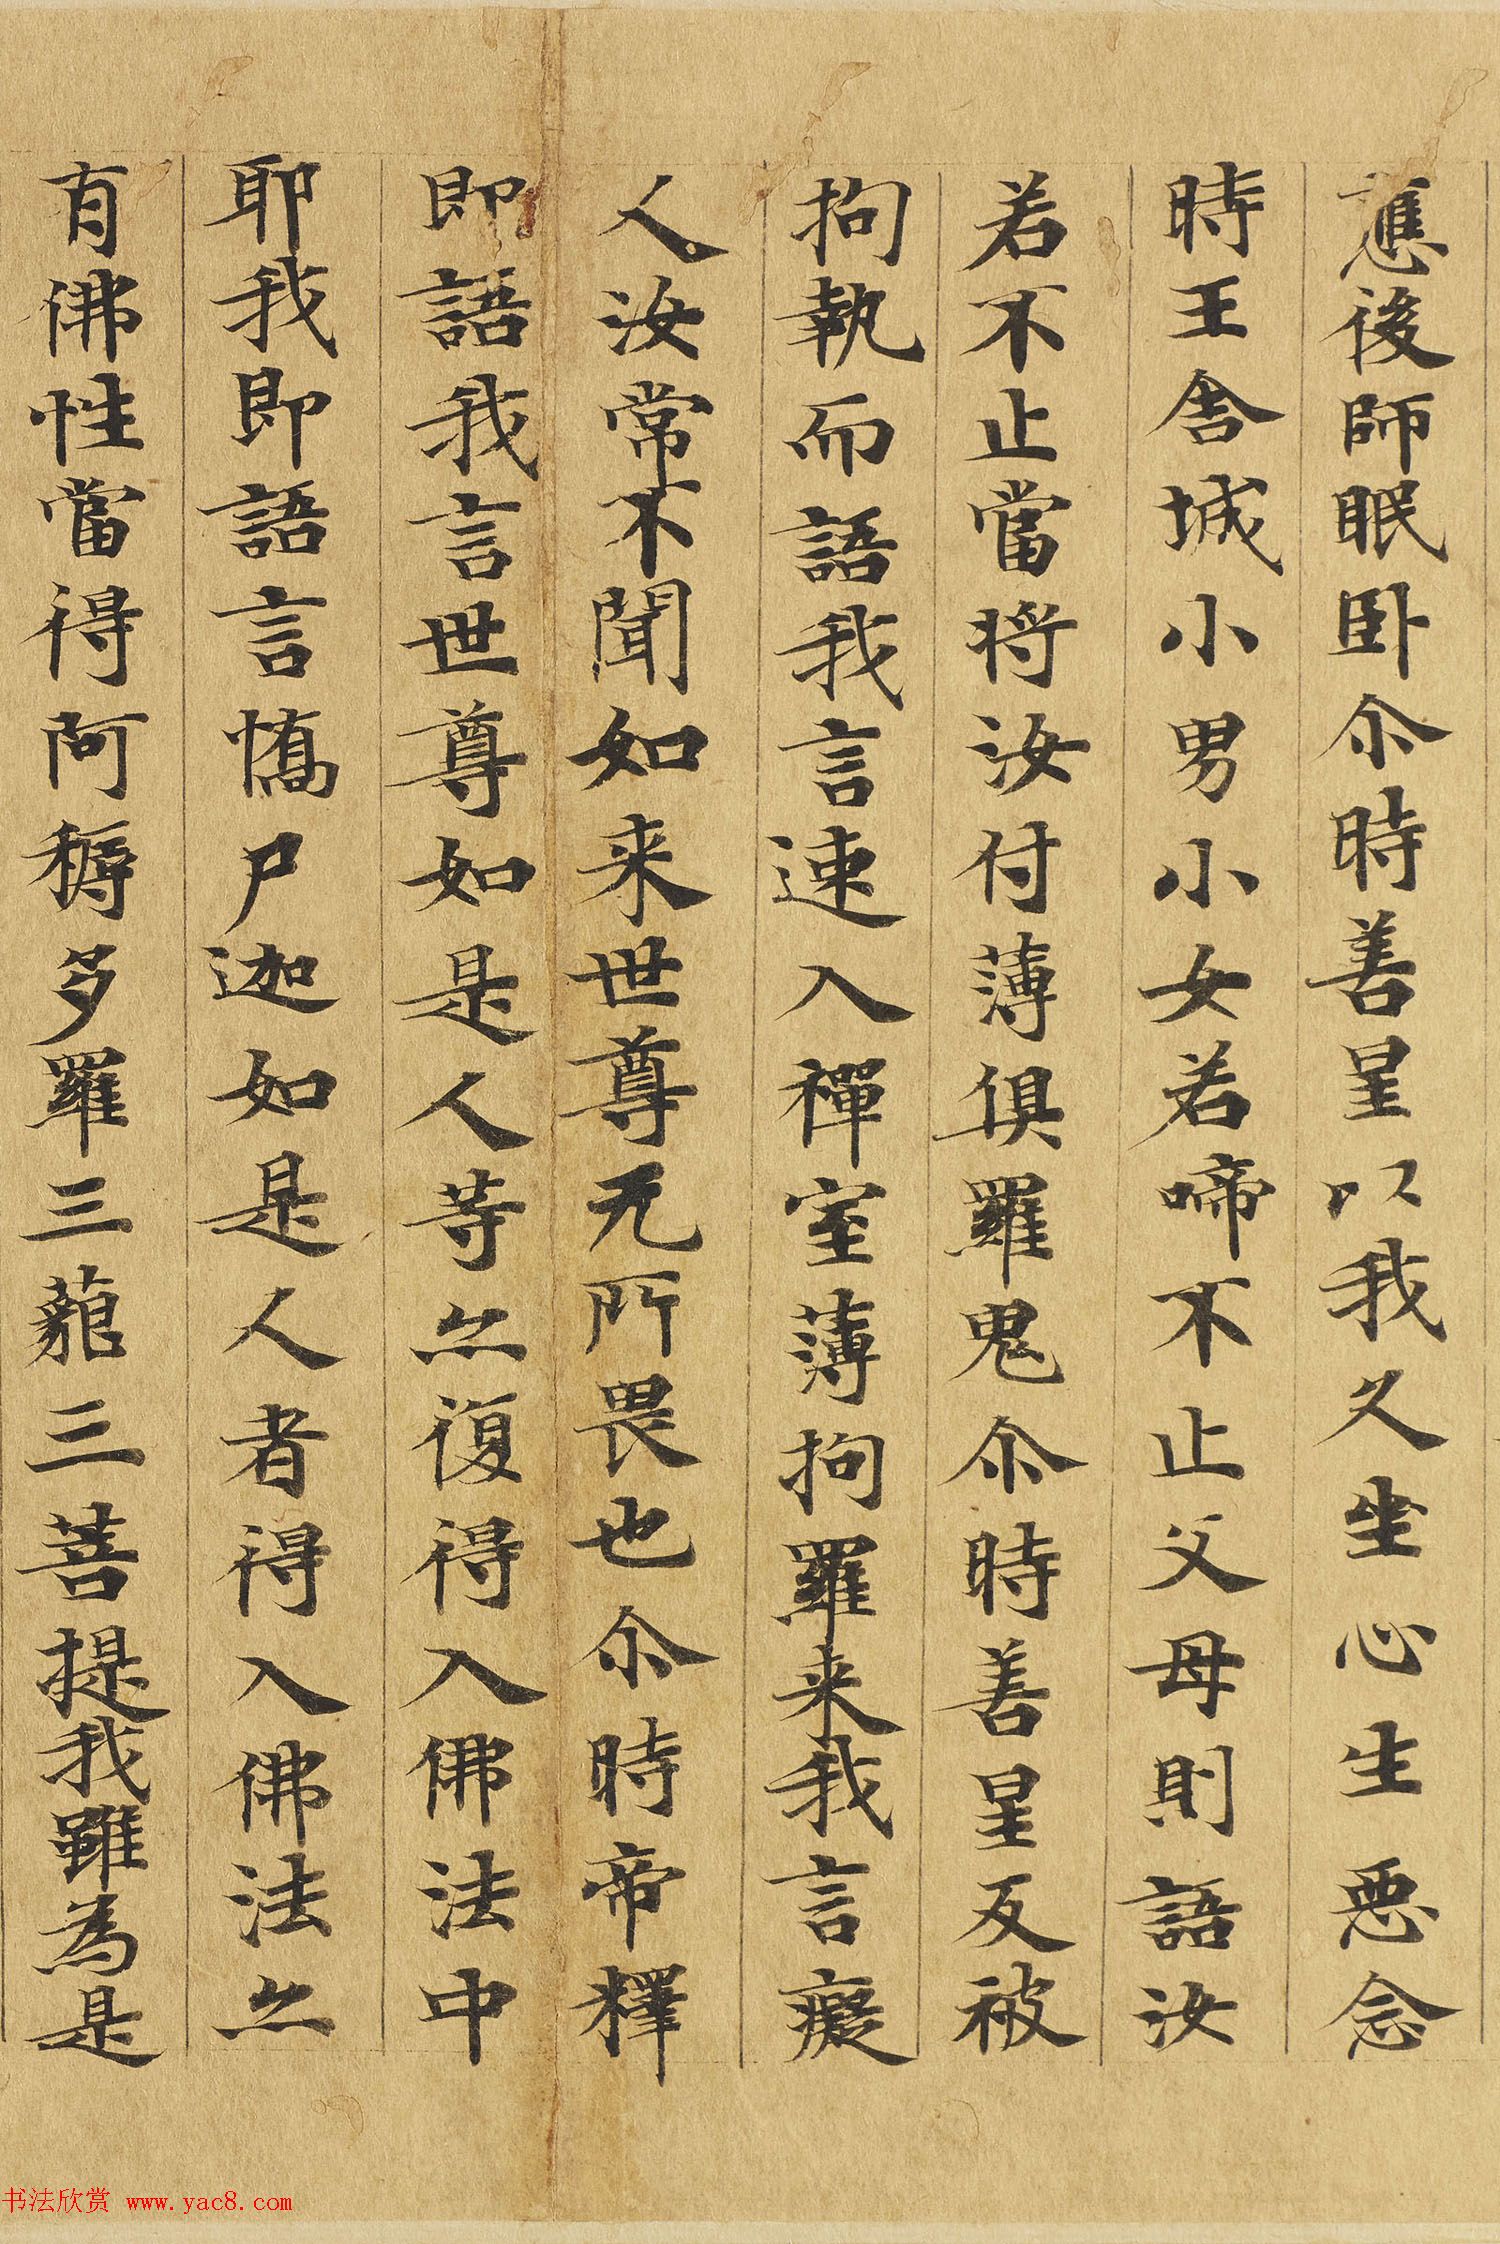 應後師眠卧尒時善星以我久坐心生惡念
時王舍城小男小女若啼不止父母則語汝
若不止當將汝付薄俱羅鬼尒時善星反被
拘執而語我言速入禪室薄拘羅来我言癡
人汝常不聞如来世尊无所畏也尒時帝釋
即語我言世尊如是人等亦復得入佛法中
耶我即語言憍尸迦如是人者得入佛法亦
有佛性當得阿耨多羅三藐三菩提我雖為是
书法欣赏 www.yac8.com